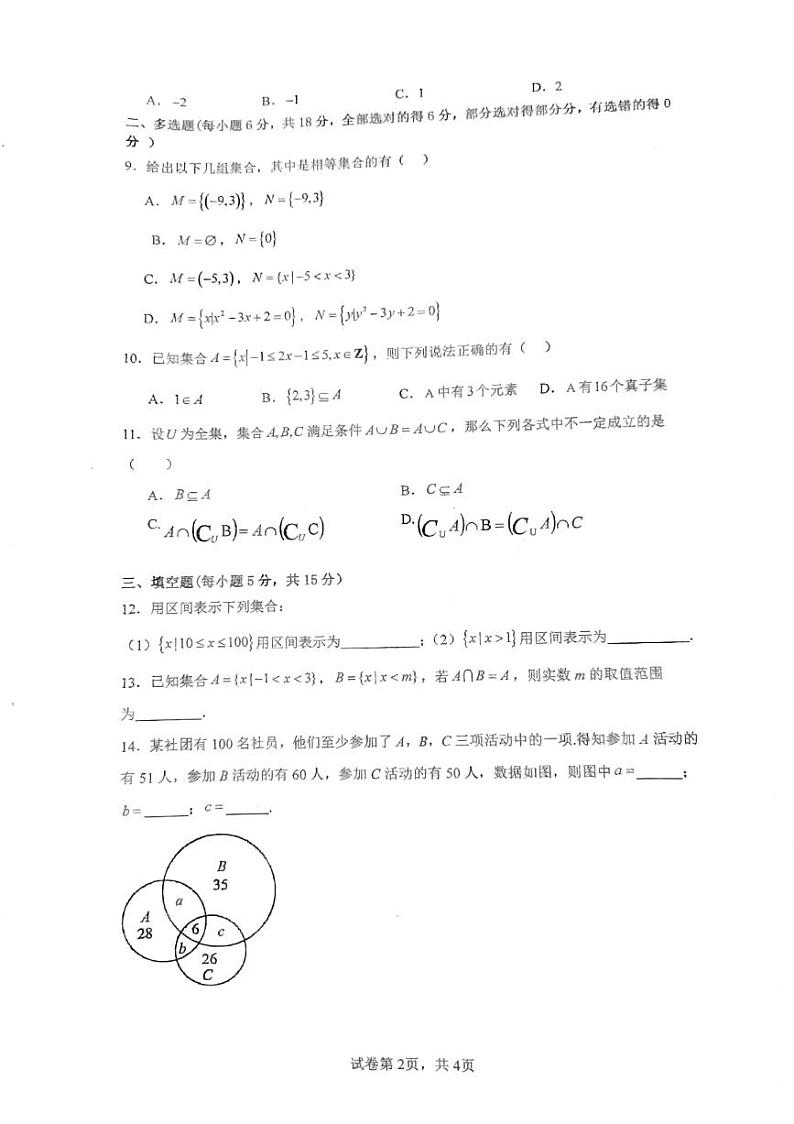 A. -2 B. -1 C. 1 D. 2
二、多选题(每小题6分，共18分，全部选对的得6分，部分选对得部分分，有选错的得0
分 )
9．给出以下几组集合，其中是相等集合的有（ ）
A．M={(-9,3)}，N={-9,3}
B．M=∅，N={0}
C．M=(-5,3)，N={x|-5<x<3}
D．M={x|x²-3x+2=0}，N={y|y²-3y+2=0}
10．已知集合A={x|-1≤2x-1≤5,x∈Z}，则下列说法正确的有（ ）
A．1∈A B．{2,3}⊆A C．A中有3个元素 D．A有16个真子集
11．设U为全集，集合A,B,C满足条件A∪B=A∪C，那么下列各式中不一定成立的是
（ ）
A．B⊆A B．C⊆A
C. A∩(C_U B)=A∩(C_U C) D. (C_U A)∩B=(C_U A)∩C
三、填空题(每小题5分，共15分)
12．用区间表示下列集合：
（1）{x|10≤x≤100}用区间表示为__________；（2）{x|x>1}用区间表示为__________.
13．已知集合A={x|-1<x<3}，B={x|x<m}，若A∩B=A，则实数m的取值范围
为________.
14．某社团有100名社员，他们至少参加了A，B，C三项活动中的一项.得知参加A活动的
有51人，参加B活动的有60人，参加C活动的有50人，数据如图，则图中a=______；
b=______；c=______.
B
35
a
A
28
6
c
b
26
C
试卷第2页，共4页